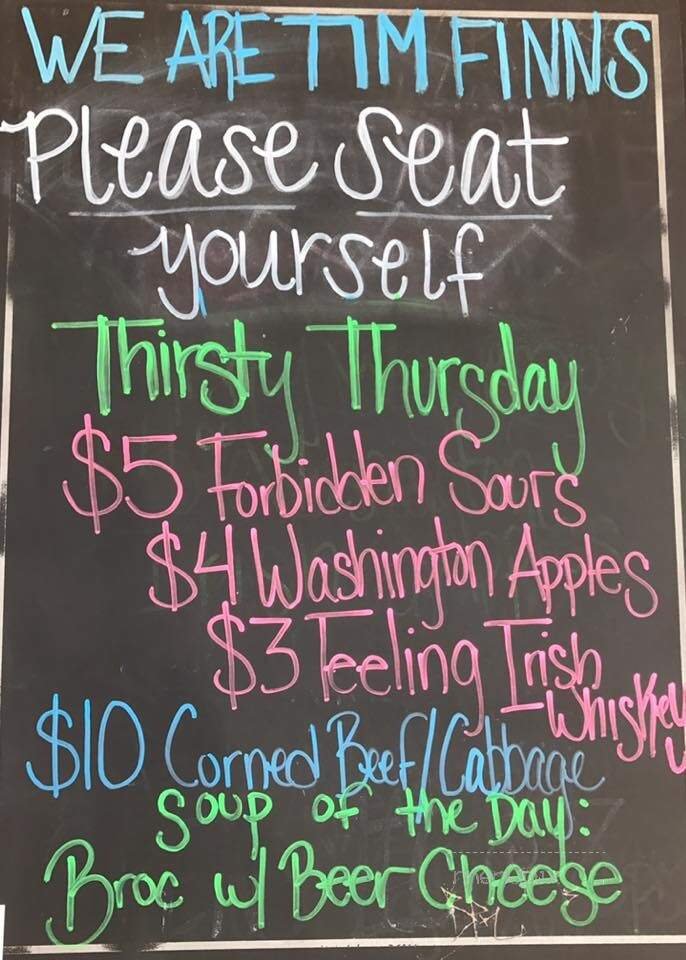 WE ARE TIM FINNS
Please Seat
yourself
Thirsty Thursday
$5 Forbidden Sours
$4 Washington Apples
$3 Teeling Irish
Whiskey
$10 Corned Beef/Cabbage
Soup of the Day:
Broc w/ Beer Cheese